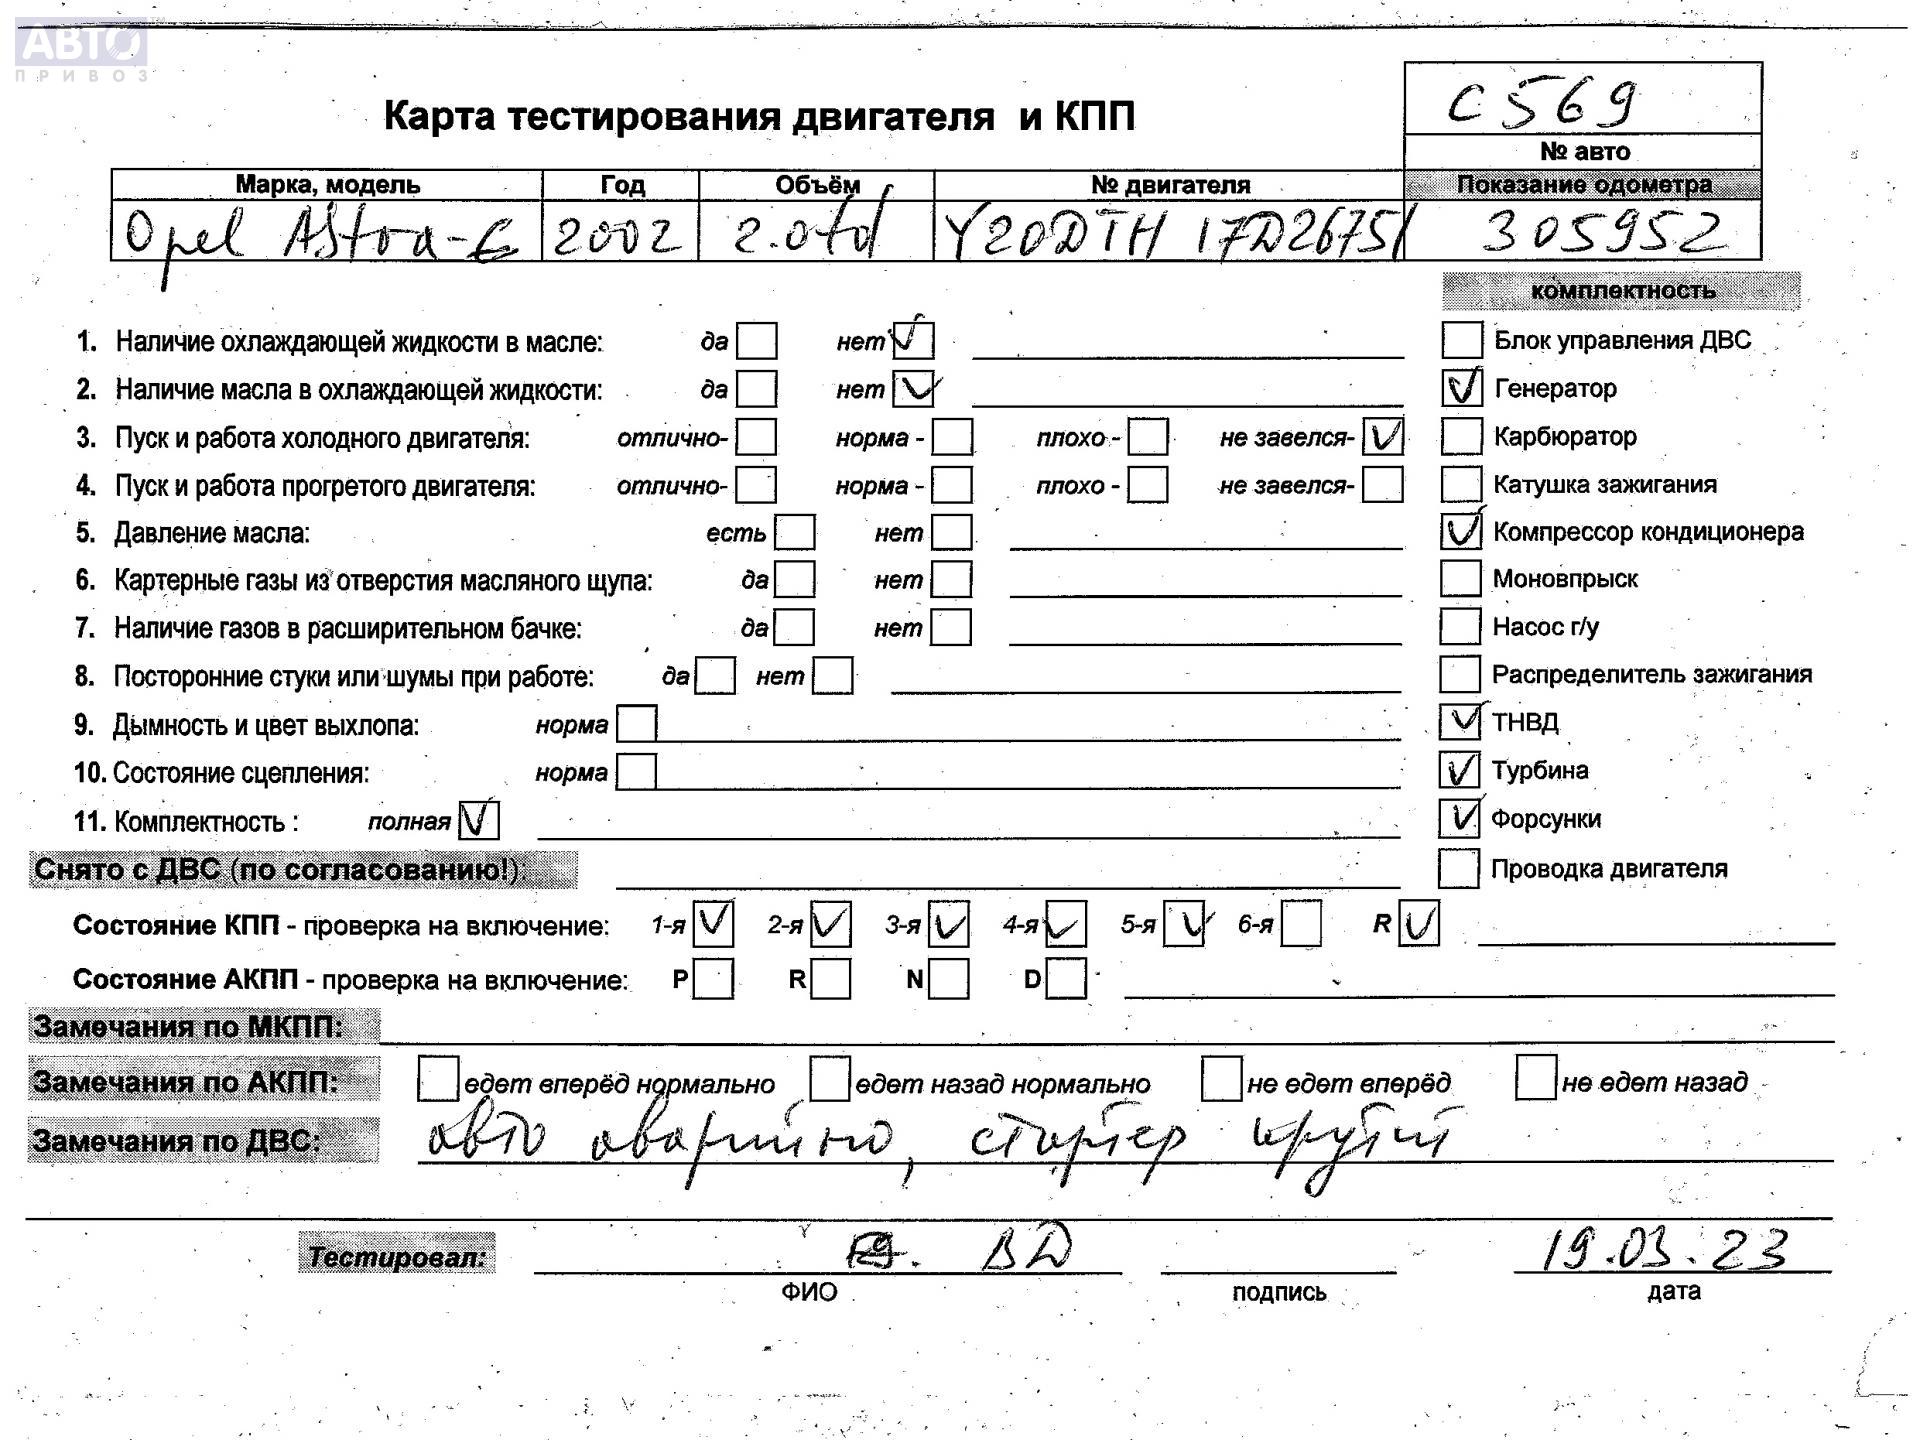 АВТО
ПРИВОЗ
С569
Карта тестирования двигателя и КПП
№ авто
Марка, модель Год Объём № двигателя Показание одометра
Opel Astra-G 2002 2.0td Y20DTH 17D26751 305952
комплектность
1. Наличие охлаждающей жидкости в масле: да нет Блок управления ДВС
2. Наличие масла в охлаждающей жидкости: да нет Генератор
3. Пуск и работа холодного двигателя: отлично- норма - плохо - не завелся- Карбюратор
4. Пуск и работа прогретого двигателя: отлично- норма - плохо - не завелся- Катушка зажигания
5. Давление масла: есть нет Компрессор кондиционера
6. Картерные газы из отверстия масляного щупа: да нет Моновпрыск
7. Наличие газов в расширительном бачке: да нет Насос г/у
8. Посторонние стуки или шумы при работе: да нет Распределитель зажигания
9. Дымность и цвет выхлопа: норма ТНВД
10. Состояние сцепления: норма Турбина
11. Комплектность : полная Форсунки
Снято с ДВС (по согласованию!): Проводка двигателя
Состояние КПП - проверка на включение: 1-я 2-я 3-я 4-я 5-я 6-я R
Состояние АКПП - проверка на включение: P R N D
Замечания по МКПП:
Замечания по АКПП: едет вперёд нормально едет назад нормально не едет вперёд не едет назад
Замечания по ДВС: авто аварийно, стартер крутит
Тестировал: ВД 19.03.23
ФИО подпись дата